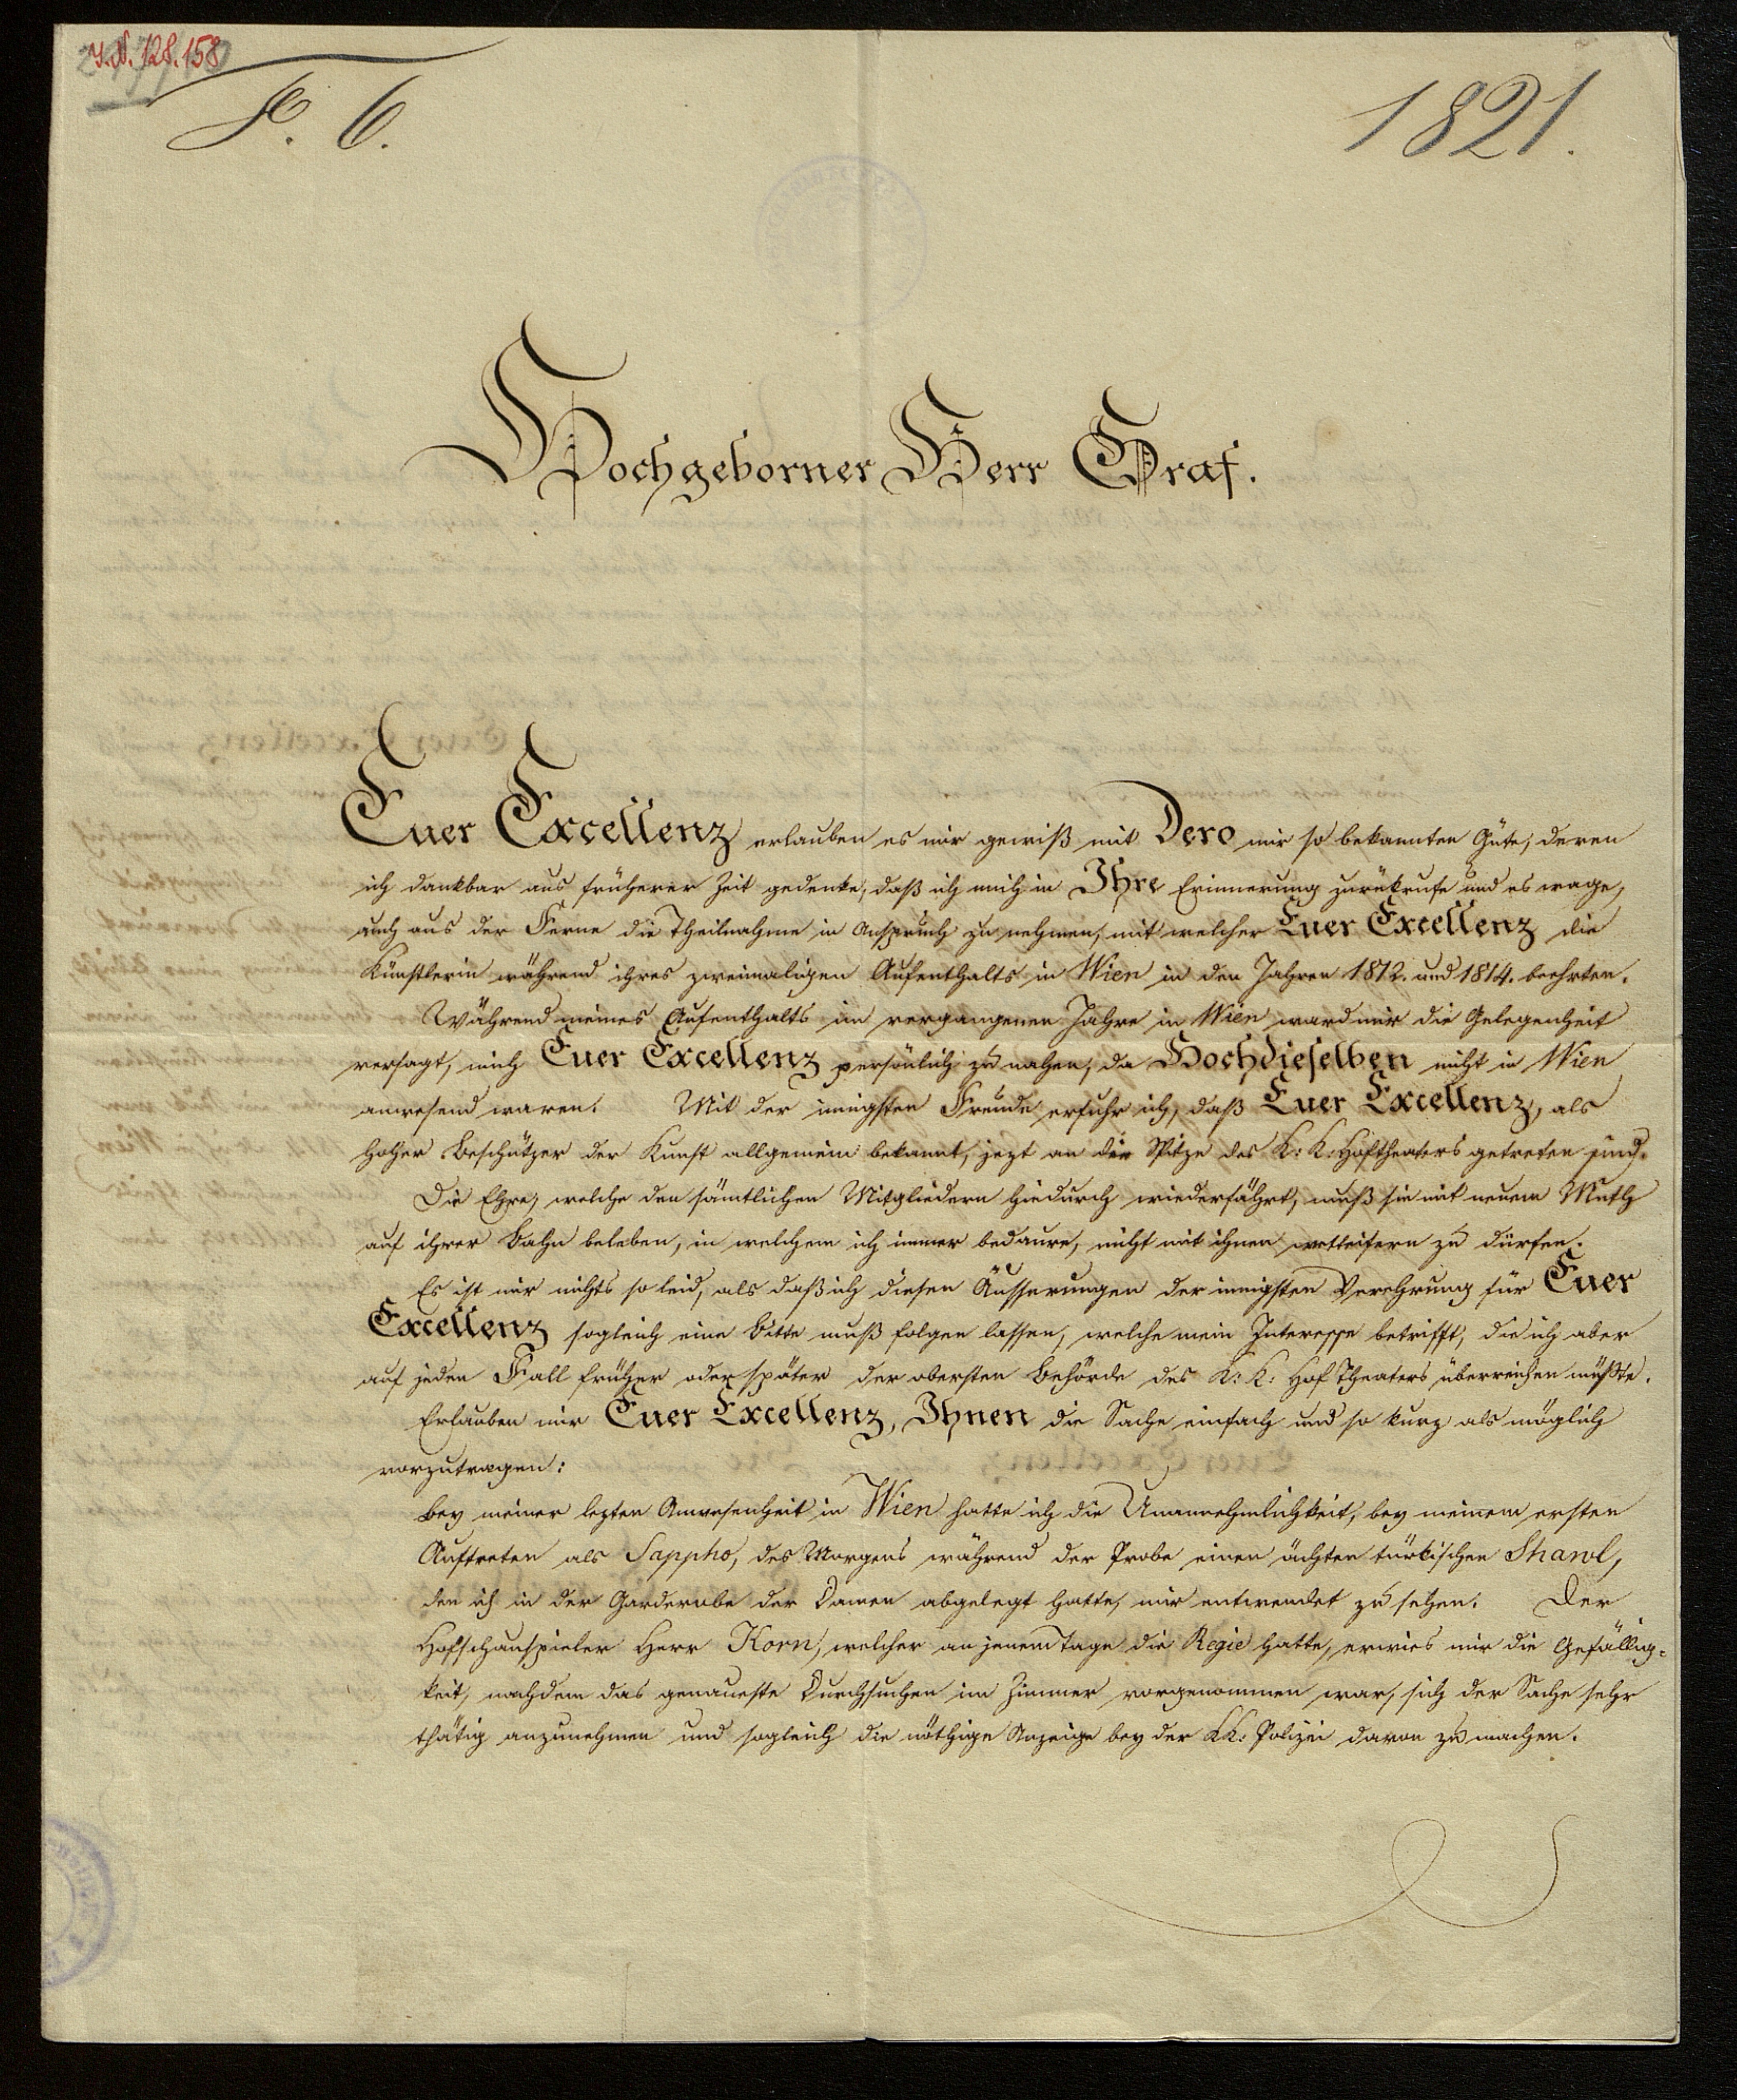 I.N. 128.158
F. 6.
1821.
Hochgeborner Herr Graf.
Euer Excellenz erlauben es mir gewiß mit Dero mir so bekannten Güte, deren
ich dankbar aus früherer Zeit gedenke, daß ich mich in Ihre Erinnerung zurükrufe und es wage,
auch aus der Ferne die Theilnahme in Anspruch zu nehmen, mit welcher Euer Excellenz die
Künstlerin während ihres zweimaligen Aufenthalts in Wien in den Jahren 1812. und 1814. beehrten.
Während meines Aufenthalts im vergangenen Jahre in Wien ward mir die Gelegenheit
versagt, mich Euer Excellenz persönlich zu nahen, da Hochdieselben nicht in Wien
anwesend waren. Mit der innigsten Freude erfuhr ich, daß Euer Excellenz, als
hoher Beschützer der Kunst allgemein bekannt, jezt an die Spitze des K: K: Hoftheaters getreten sind.
Die Ehre, welche den sämtlichen Mitgliedern hiedurch wiederfährt, muß sie mit neuem Muth
auf ihrer Bahn beleben, in welchem ich immer bedaure, nicht mit ihnen wetteifern zu dürfen.
Es ist mir nichts so leid, als daß ich diesen Äusserungen der innigsten Verehrung für Euer
Excellenz sogleich eine Bitte muß folgen lassen, welche mein Interesse betrifft, die ich aber
auf jeden Fall früher oder später der obersten Behörde des K: K: Hof Theaters überreichen müßte.
Erlauben mir Euer Excellenz, Ihnen die Sache einfach und so kurz als möglich
vorzutragen:
Bey meiner lezten Anwesenheit in Wien hatte ich die Unannehmlichkeit, bey meinem ersten
Auftreten als Sappho, des Morgens während der Probe einen ächten türkischen Shawl,
den ich in der Garderobe der Damen abgelegt hatte, mir entwendet zu sehen. Der
Hofschauspieler Herr Korn, welcher an jenem Tage die Regie hatte, erwies mir die Gefällig=
keit, nachdem das genaueste Durchsuchen im Zimmer vorgenommen war, sich der Sache sehr
thätig anzunehmen und sogleich die nöthige Anzeige bey der KK: Polizei davon zu machen.